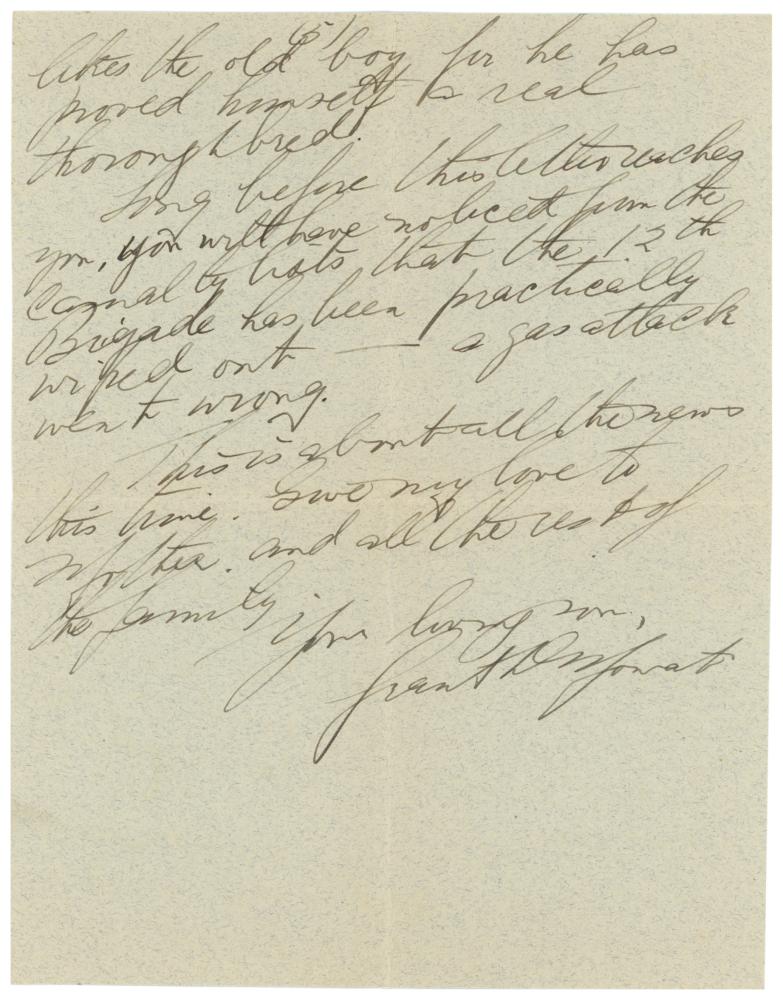 (5)
likes the old boy for he has
proved himself a real
thoroughbred.
Long before this letter reaches
you, you will have noticed from the
casualty lists that the 12th
Brigade has been practically
wiped out — a gas attack
went wrong.
This is about all the news
this time. Give my love to
Mother. and all the rest of
the family
Your loving son,
Grant D. Mowat